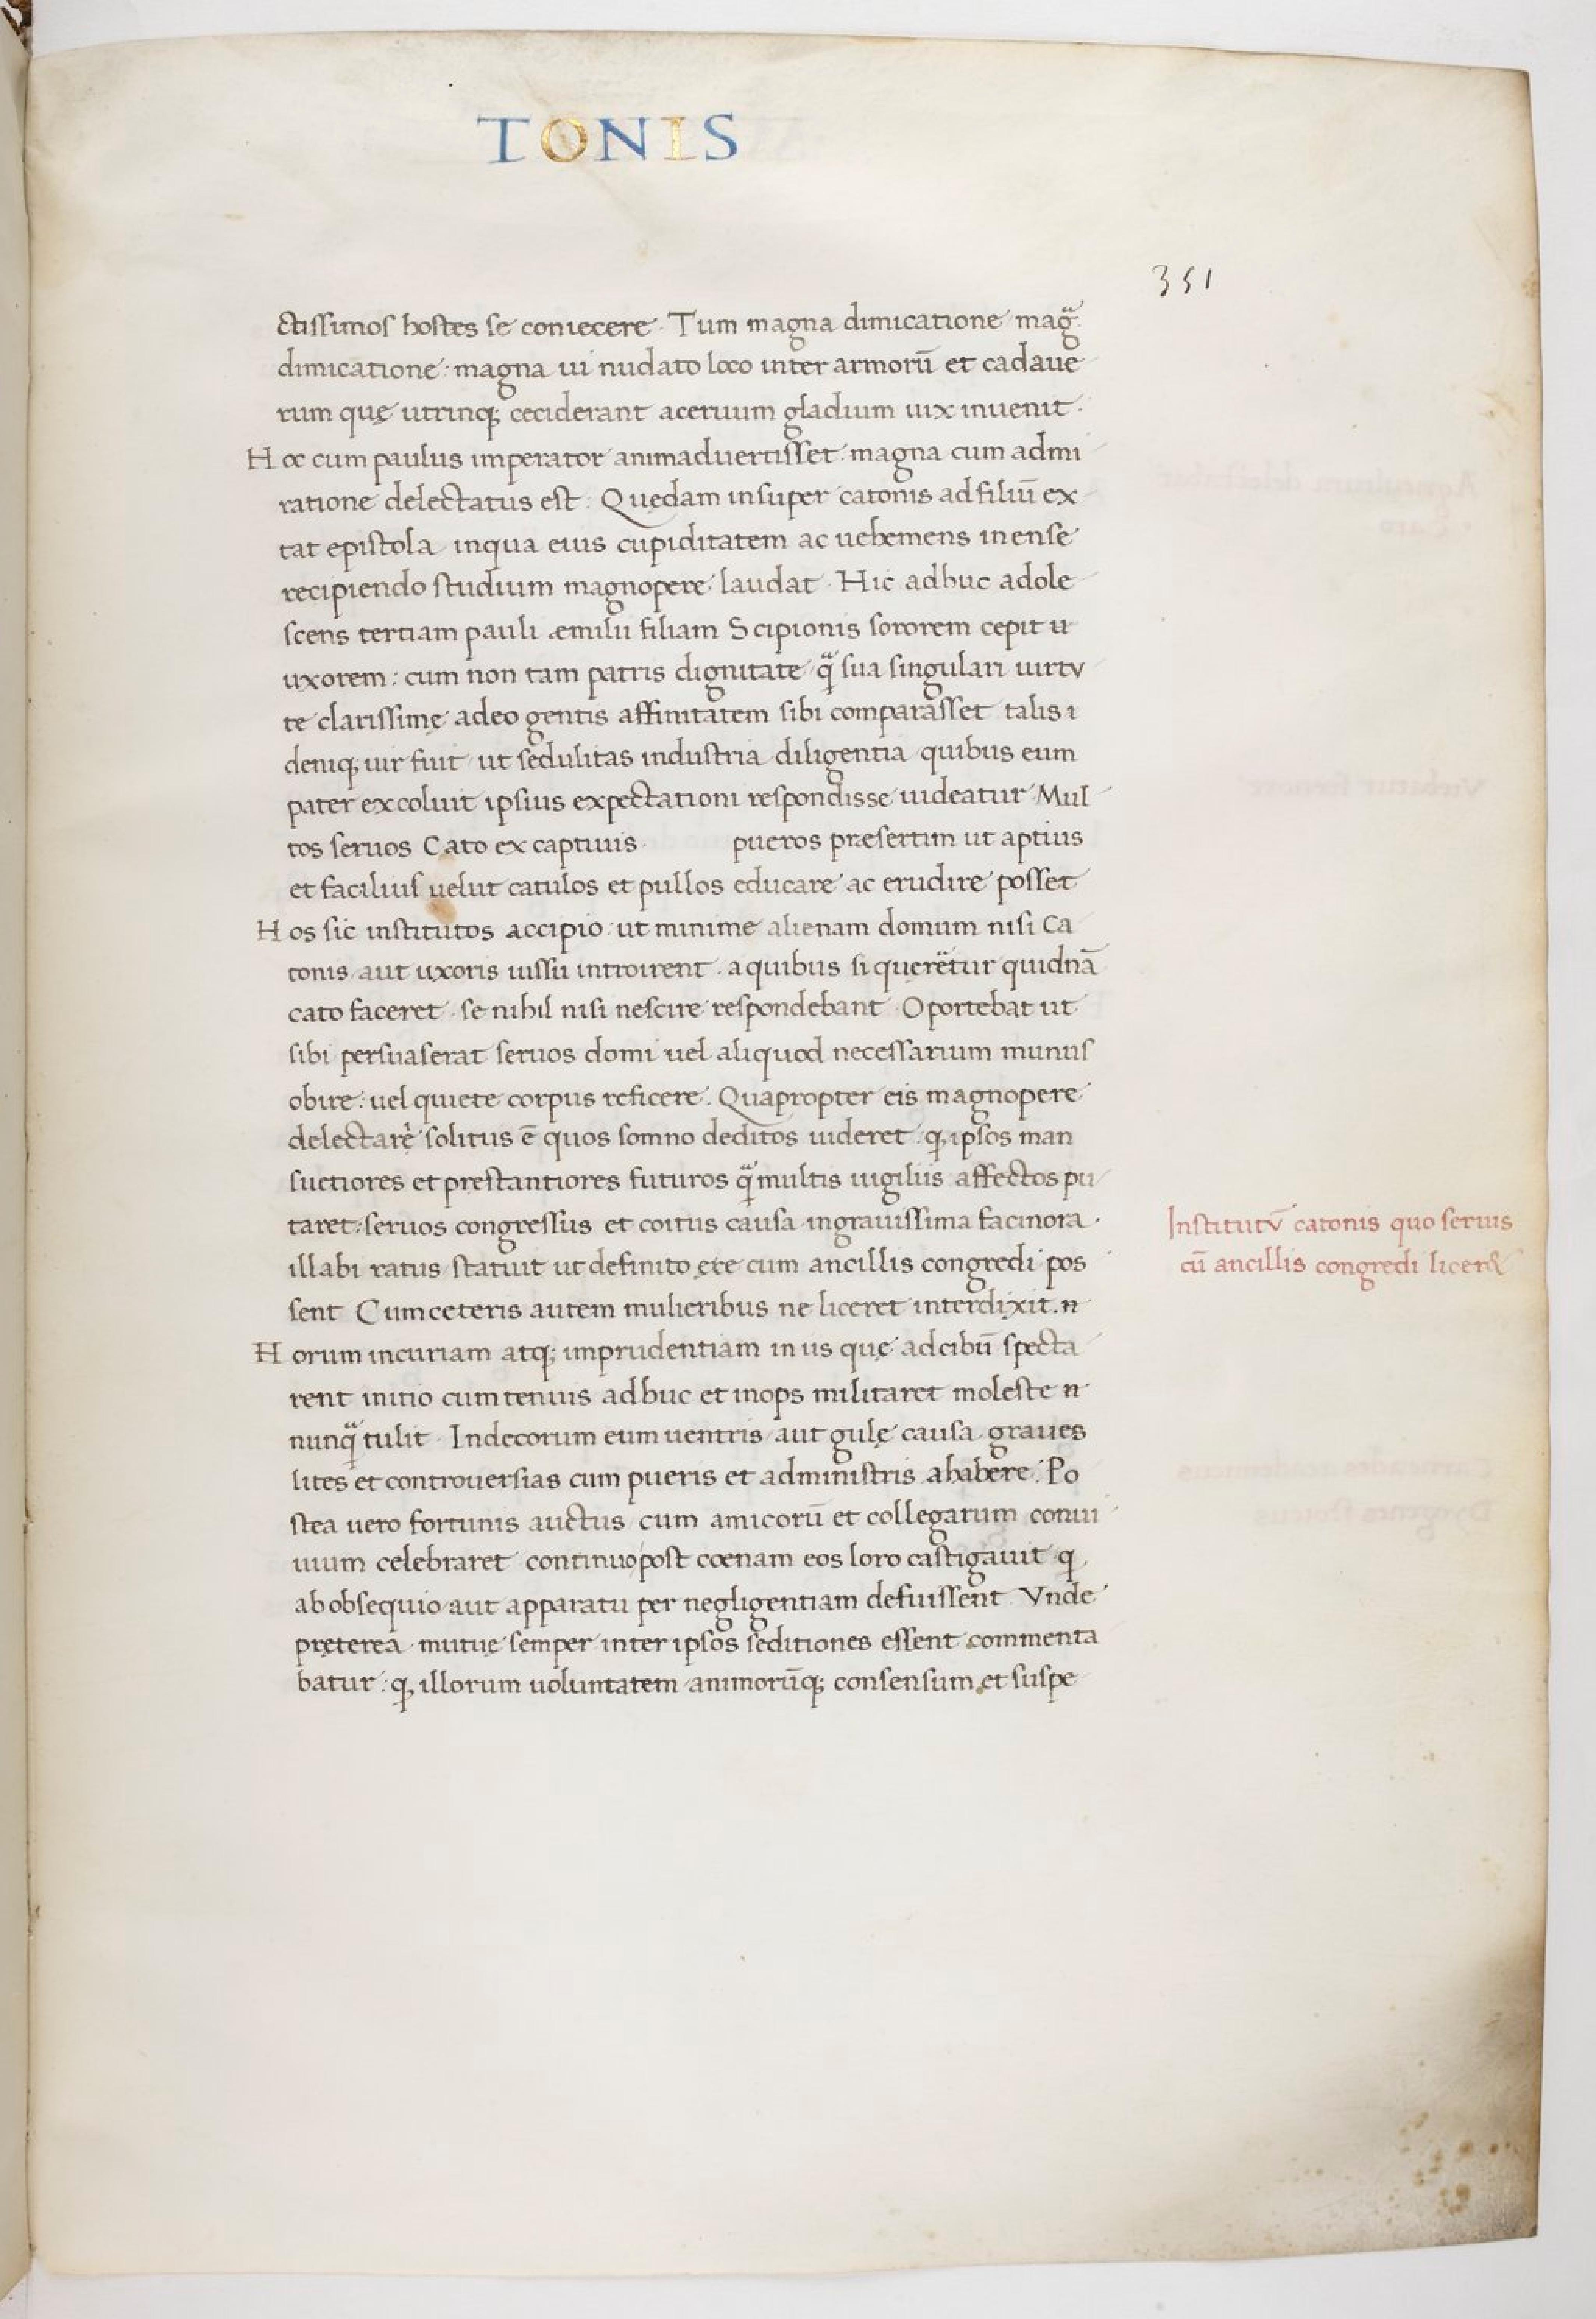 TONIS
351
ctissimos hostes se coniecere. Tum magna dimicatione mag̃.
dimicatione: magna ui nudato loco inter armorū et cadaue
rum quę utrinq; ceciderant aceruum gladium uix inuenit.
Hoc cum paulus imperator animaduertisset: magna cum admi
ratione delectatus est: Quędam insuper catonis ad filiū ex
tat epistola inqua eius cupiditatem ac uehemens in ense
recipiendo studium magnopere laudat. Hic adhuc adole
scens tertiam pauli æmilii filiam Scipionis sororem cepit u
uxorem: cum non tam patris dignitate q̃ sua singulari uirtv
te clarissimę adeo gentis affinitatem sibi comparasset talis i
deniq; uir fuit ut sedulitas industria diligentia quibus eum
pater excoluit ipsius expectationi respondisse uideatur Mul
tos seruos Cato ex captiuis. pueros præsertim ut aptius
et facilius uelut catulos et pullos educare ac erudire posset
Hos sic institutos accipio: ut minime alienam domum nisi Ca
tonis aut uxoris iussu introirent. a quibus si querẽtur quidnā
cato faceret. se nihil nisi nescire respondebant. Oportebat ut
sibi persuaserat seruos domi uel aliquod necessarium munus
obire: uel quiete corpus reficere. Quapropter eis magnopere
delectarẻ solitus ē quos somno deditos uideret: q, ipsos man
suetiores et prestantiores futuros q̃ multis uigiliis affectos pu
taret: seruos congressus et coitus causa ingrauissima facinora.
illabi ratus statuit ut definito ęre cum ancillis congredi pos
sent Cum ceteris autem mulieribus ne liceret interdixit. n
Institutv̄ catonis quo seruis
cū ancillis congredi licer&
Horum incuriam atq; imprudentiam in iis quę adcibū specta
rent initio cum tenuis adhuc et inops militaret moleste n
nunq̃ tulit. Indecorum eum uentris aut gulę causa graues
lites et controuersias cum pueris et administris ahabere: Po
stea uero fortunis auctus cum amicorū et collegarum conui
uium celebraret continuo post coenam eos loro castigauit q,
ab obsequio aut apparatu per negligentiam defuissent Vnde
pręterea mutuę semper inter ipsos seditiones essent commenta
batur: q, illorum uoluntatem animorūq; consensum et suspe